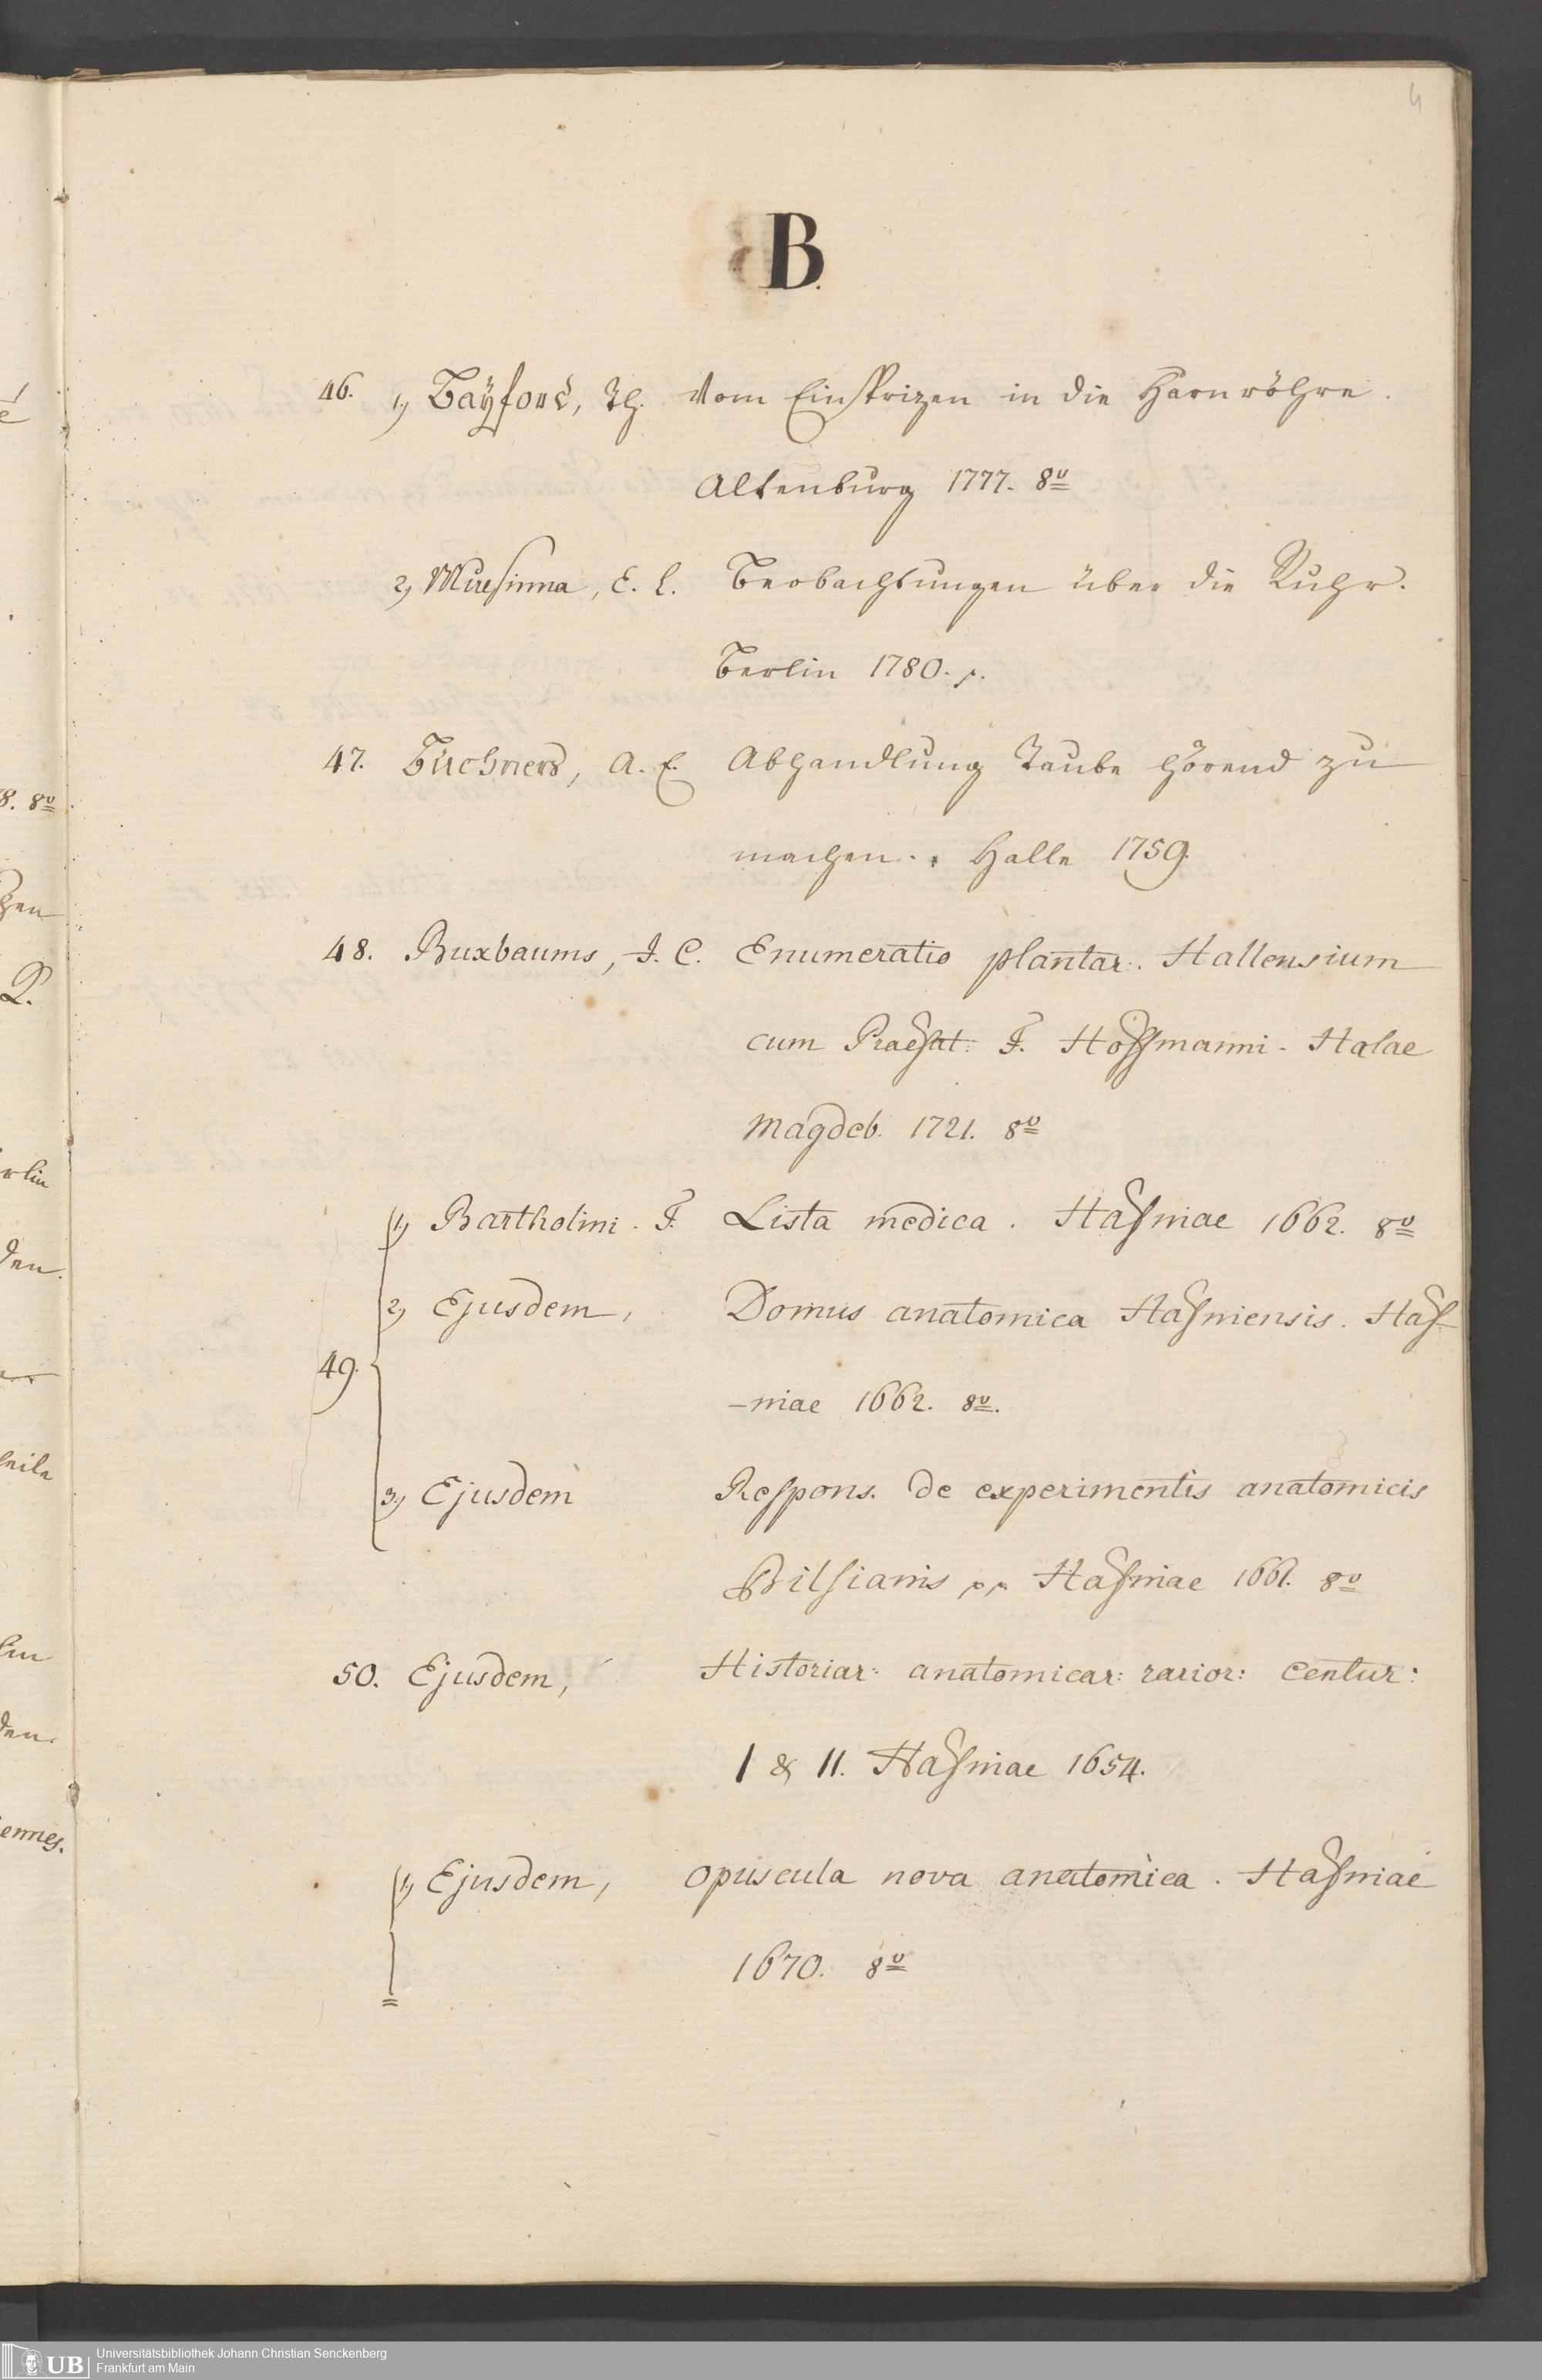 4
B.
46. 1) Bayford, Th. Vom Einsprizen in die Harnröhre.
Altenburg 1777. 8º
2) Mursinna, C. L. Beobachtungen über die Ruhr.
Berlin 1780.
47. Büchners, A. E. Abhandlung Taube hörend zu
machen. Halle 1759.
48. Buxbaums, J. C. Enumeratio plantar. Hallensium
cum Praefat: F. Hoffmanni. Halae
Magdeb. 1721. 8º
1) Bartholini. T. Cista medica. Hafniae 1662. 8º
2) Ejusdem, Domus anatomica Hafniensis. Haf
49.
-niae 1662. 8º.
3) Ejusdem Respons. de experimentis anatomicis
Bilsianis Hafniae 1661. 8º
50. Ejusdem, Historiar: anatomicar: rarior: Centur:
I & II. Hafniae 1654.
1) Ejusdem, Opuscula nova anatomica. Hafniae
1670. 8º
UB Universitätsbibliothek Johann Christian Senckenberg
Frankfurt am Main